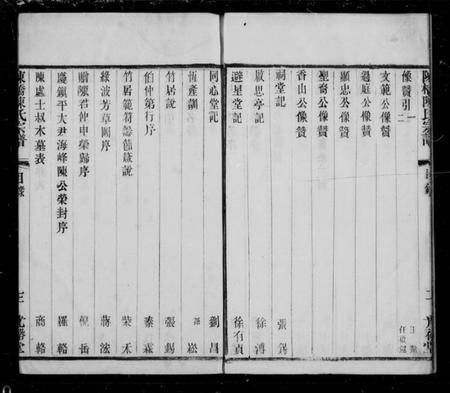 陳橋陳氏宗譜
目錄
二
像贊引一
二
王
任
文範公像贊
過庭公像贊
顯忠公像贊
聖裔公像贊
香山公像贊
祠堂記 張錫
啟思亭記 徐溥
避星堂記 徐有貞
同心堂記 劉昌
恆產訓 松
竹居說 張錫
伯仲第行序 秦霖
竹居範芻 說 榮禾
綠波芳草圖序 蔣浤
贈陳君仲申榮歸序 倪岳
慶鎮平大尹海峰陳公榮封序 羅輅
陳處士叔木墓表 商輅
陳橋陳氏宗譜
目錄
三